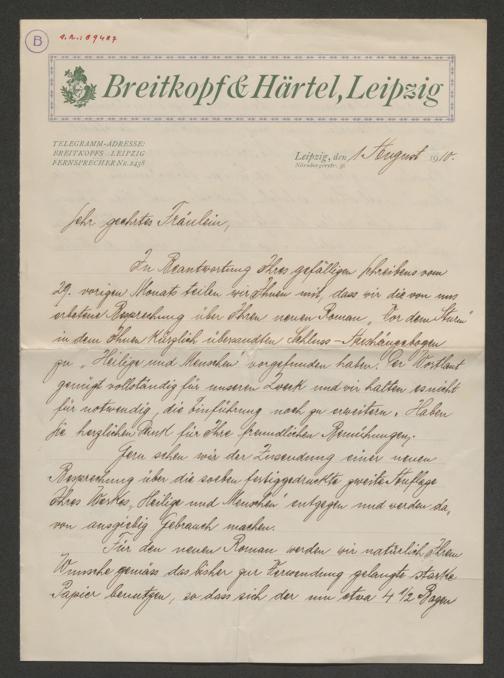 B
Breitkopf & Härtel, Leipzig
TELEGRAMM-ADRESSE:
BREITKOPFS LEIPZIG
FERNSPRECHER Nr. 2438
Leipzig, den 1. August 1910.
Nürnbergerstr. 36
Sehr geehrtes Fräulein,
In Beantwortung Ihres gefälligen Schreibens vom
29. vorigen Monats teilen wir Ihnen mit, dass wir die von uns
erbetene Besprechung über Ihren neuen Roman „Vor dem Sturm"
in dem Ihnen kürzlich übersandten Schluss-Aushängebogen
zu „Heilige und Menschen" vorgefunden haben. Der Wortlaut
genügt vollständig für unseren Zweck und wir halten es nicht
für notwendig, die Einführung noch zu erweitern. Haben
Sie herzlichen Dank für Ihre freundlichen Bemühungen.
Gern sehen wir der Zusendung einer neuen
Besprechung über die soeben fertiggedruckte zweite Auflage
Ihres Werkes „Heilige und Menschen" entgegen und werden da-
von ausgiebig Gebrauch machen.
Für den neuen Roman werden wir natürlich Ihrem
Wunsche gemäss das bisher zur Verwendung gelangte starke
Papier benutzen, so dass sich der nun etwa 4 1/2 Bogen